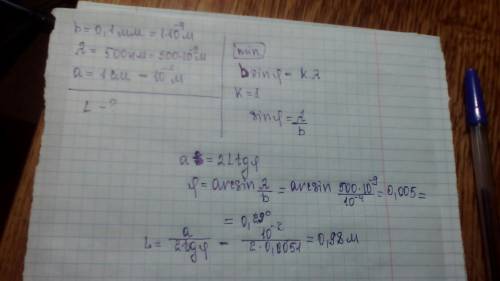 b = 0,1 мм = 1·10⁻⁴ м
λ = 500 нм = 500·10⁻⁹ м
a = 1 см = 10⁻² м
L - ?
min
b sin φ = kλ
k = 1
sin φ = λ/b
a = 2L tg φ
φ = arcsin λ/b = arcsin 500·10⁻⁹/10⁻⁴ = 0,005 =
= 0,29°
L = a/2tg φ = 10⁻²/2·0,0051 = 0,98 м